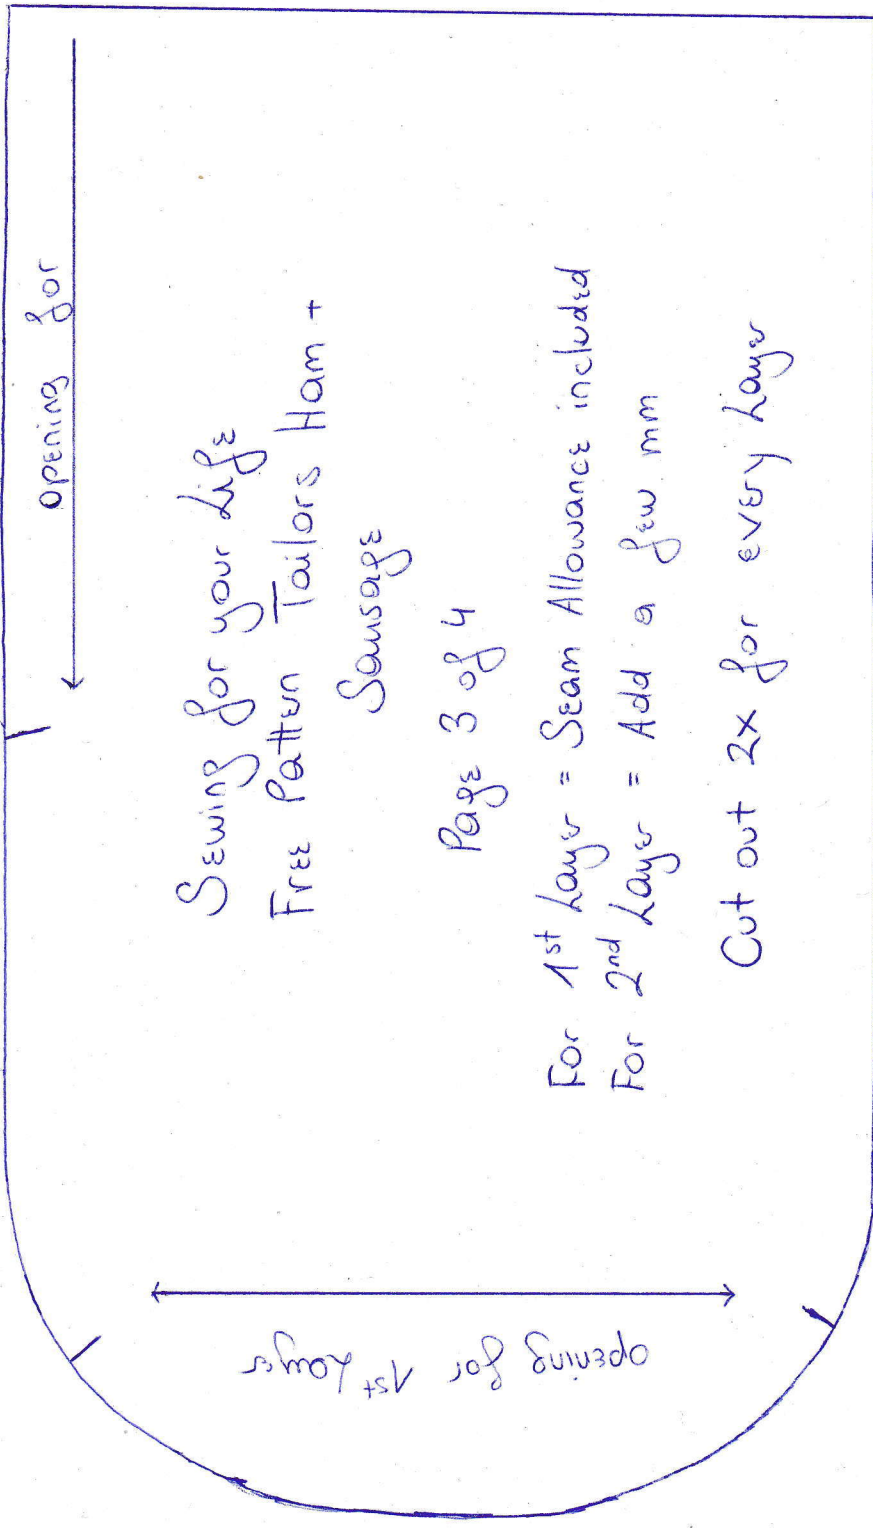 opening for
Sewing for your Life
Free Pattern Tailors Ham +
Sausage
Page 3 of 4
For 1st Layer = Seam Allowance included
For 2nd Layer = Add a few mm
Cut out 2x for every Layer
opening for 1st Layer